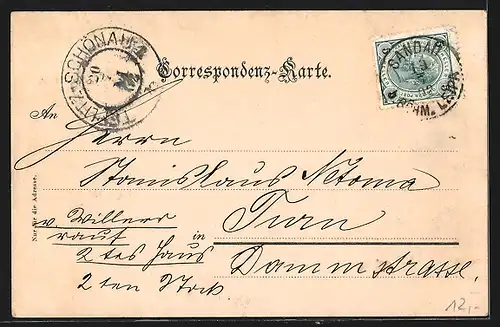 TEPLITZ-SCHÖNAU 1
Correspondenz-Karte.
SANDAU
BÖHM. LEIPA
An
Herrn
Stanislaus Netoma
Turn
v. Willner
rauf in
2tes Haus
Dammstrasse.
2ten Stock.
Nur für die Adresse.
12,-